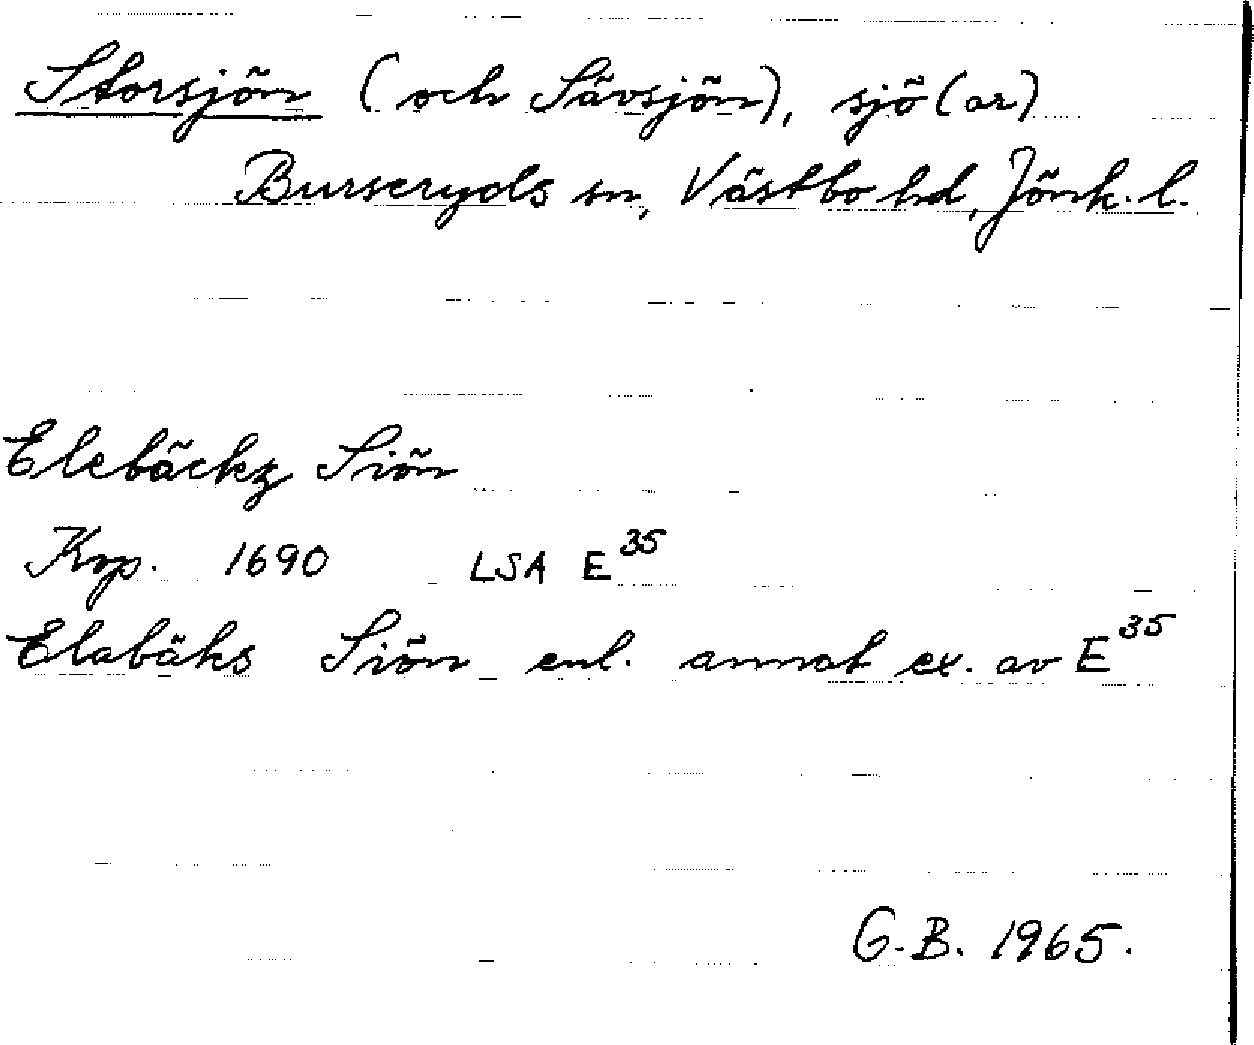 Storsjön (och Sävsjön), sjö(ar)
Burseryds sn, Västbo hd, Jönk. l.
Elebäckz Siön
Krp. 1690 LSA E³⁵
Elabäks Siön enl. annat ex. av E³⁵
G.B. 1965.